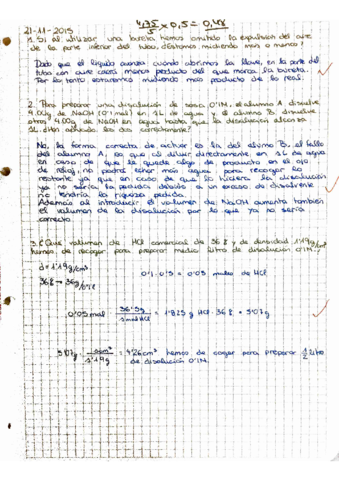 4,75/5 x 0,5 = 0,48
21-11-2015
1. Si al utilizar una bureta hemos omitido la expulsión del aire
de la parte inferior del tubo, ¿Estamos midiendo más o menos?
Dado que el líquido avanza cuando abrimos la llave, en la parte del
tubo con aire caerá menos producto del que marca la bureta.
Por lo tanto estaremos midiendo más producto de lo real.
2. Para preparar una disolución de sosa 0'1M, el alumno A disuelve
4.00g de NaOH (0'1 mol) en 1L de agua y el alumno B disuelve
otros 4.00g de NaOH en agua hasta que la disolución alcanza
1L. ¿Han actuado los dos correctamente?
No, la forma correcta de actuar es la del alumno B, el fallo
del alumno A, es que al diluir directamente en 1L de agua
en caso de que le quede algo de producto en el ojo
de reloj, no podrá echar más agua para recoger lo
restante ya que en caso de que lo hiciera la disolución
ya no sería la pedida debido a un exceso de disolvente
no tendría la riqueza pedida.
Además al introducir el volumen de NaOH aumenta también
el volumen de la disolución por lo que ya no sería
correcto.
3. ¿Qué volumen de HCl comercial de 36% y de densidad 1'19g/cm³
hemos de recoger para preparar medio litro de disolución 0'1M.
d = 1'19g/cm³
36% → 36g
0'1 · 0'5 = 0'05 moles de HCl
0'05mol 36'5g/1mol HCl = 1'825g HCl · 36% = 5'07g
5'07g · 1cm³/1'19g = 4'26cm³ hemos de coger para preparar 1/2 litro
de disolución 0'1M.